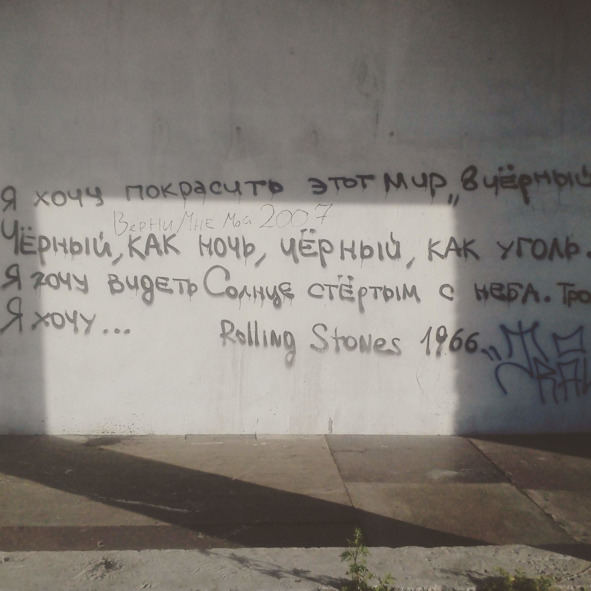 Я хочу покрасить этот мир „в чёрный
Верни мне мой 2007
Чёрный, как ночь, чёрный, как уголь.
Я хочу видеть Солнце стёртым с неба.
Я хочу... Rolling Stones 1966„